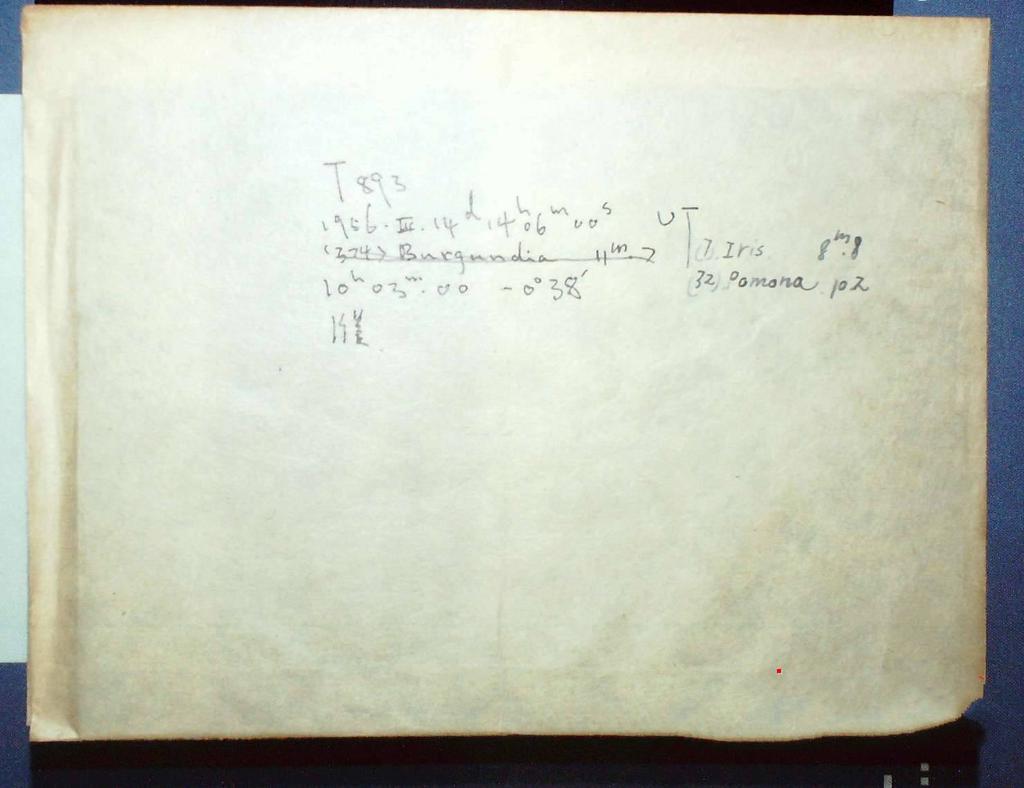 T 893
1956. III. 14ᵈ 14ʰ 06ᵐ 00ˢ UT
(374) Burgundia 11ᵐ.2
10ʰ 03ᵐ.00 -0°38′
(7) Iris 8ᵐ.8
(32) Pomona 10.2